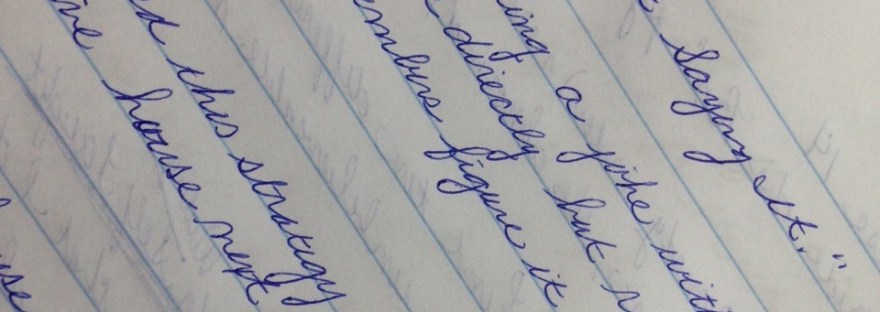 saying it."
ing a joke with
directly but
figure it
d this strategy
house next
use